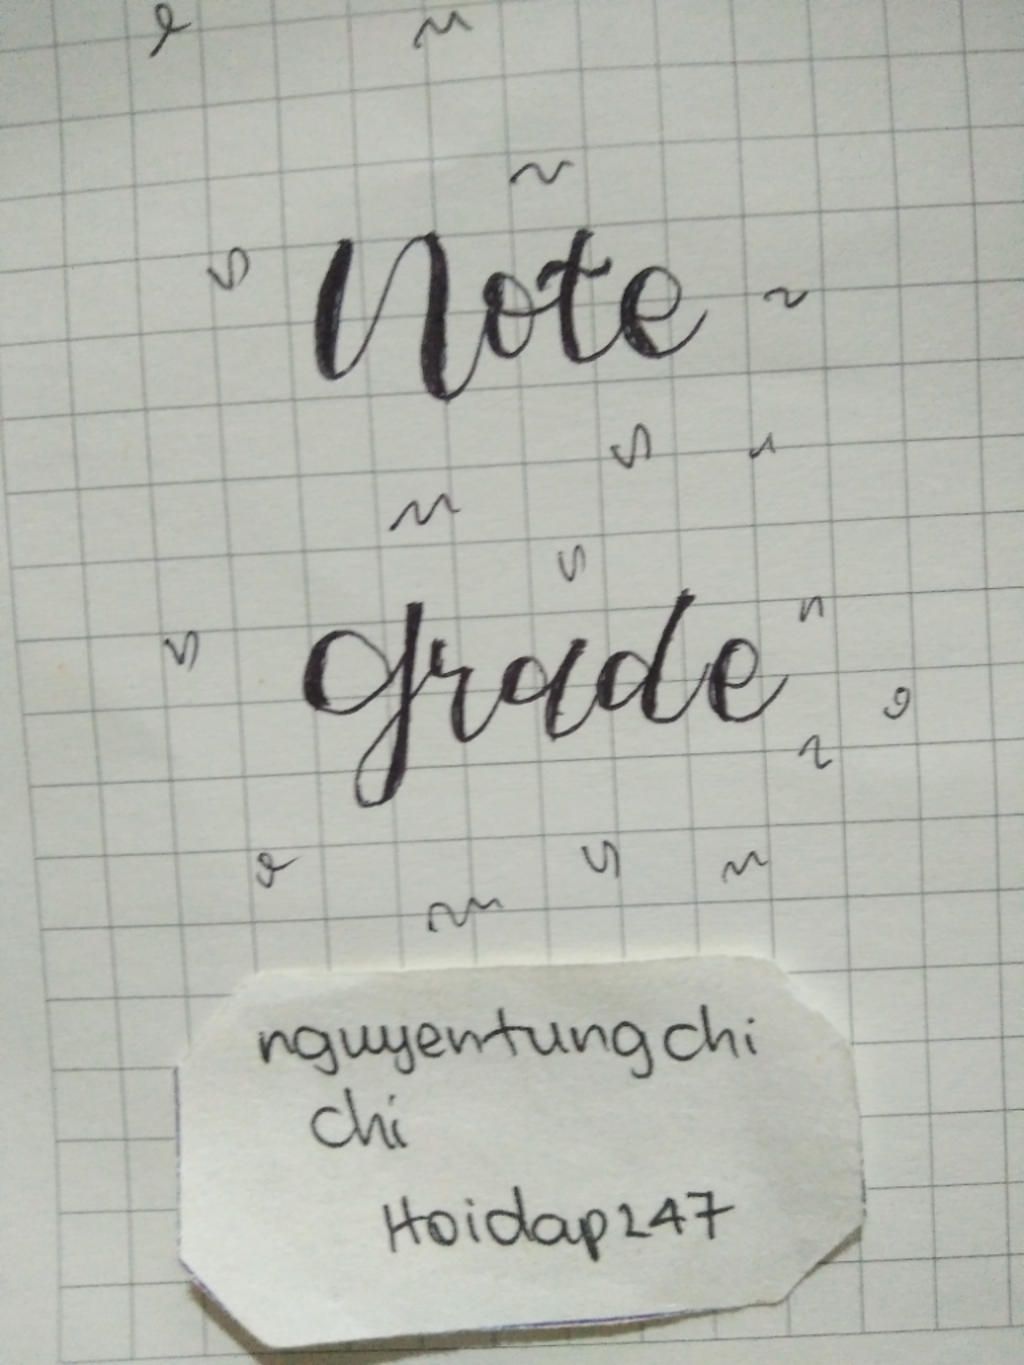 Note
grade
nguyentungchi
chi
Hoidap247